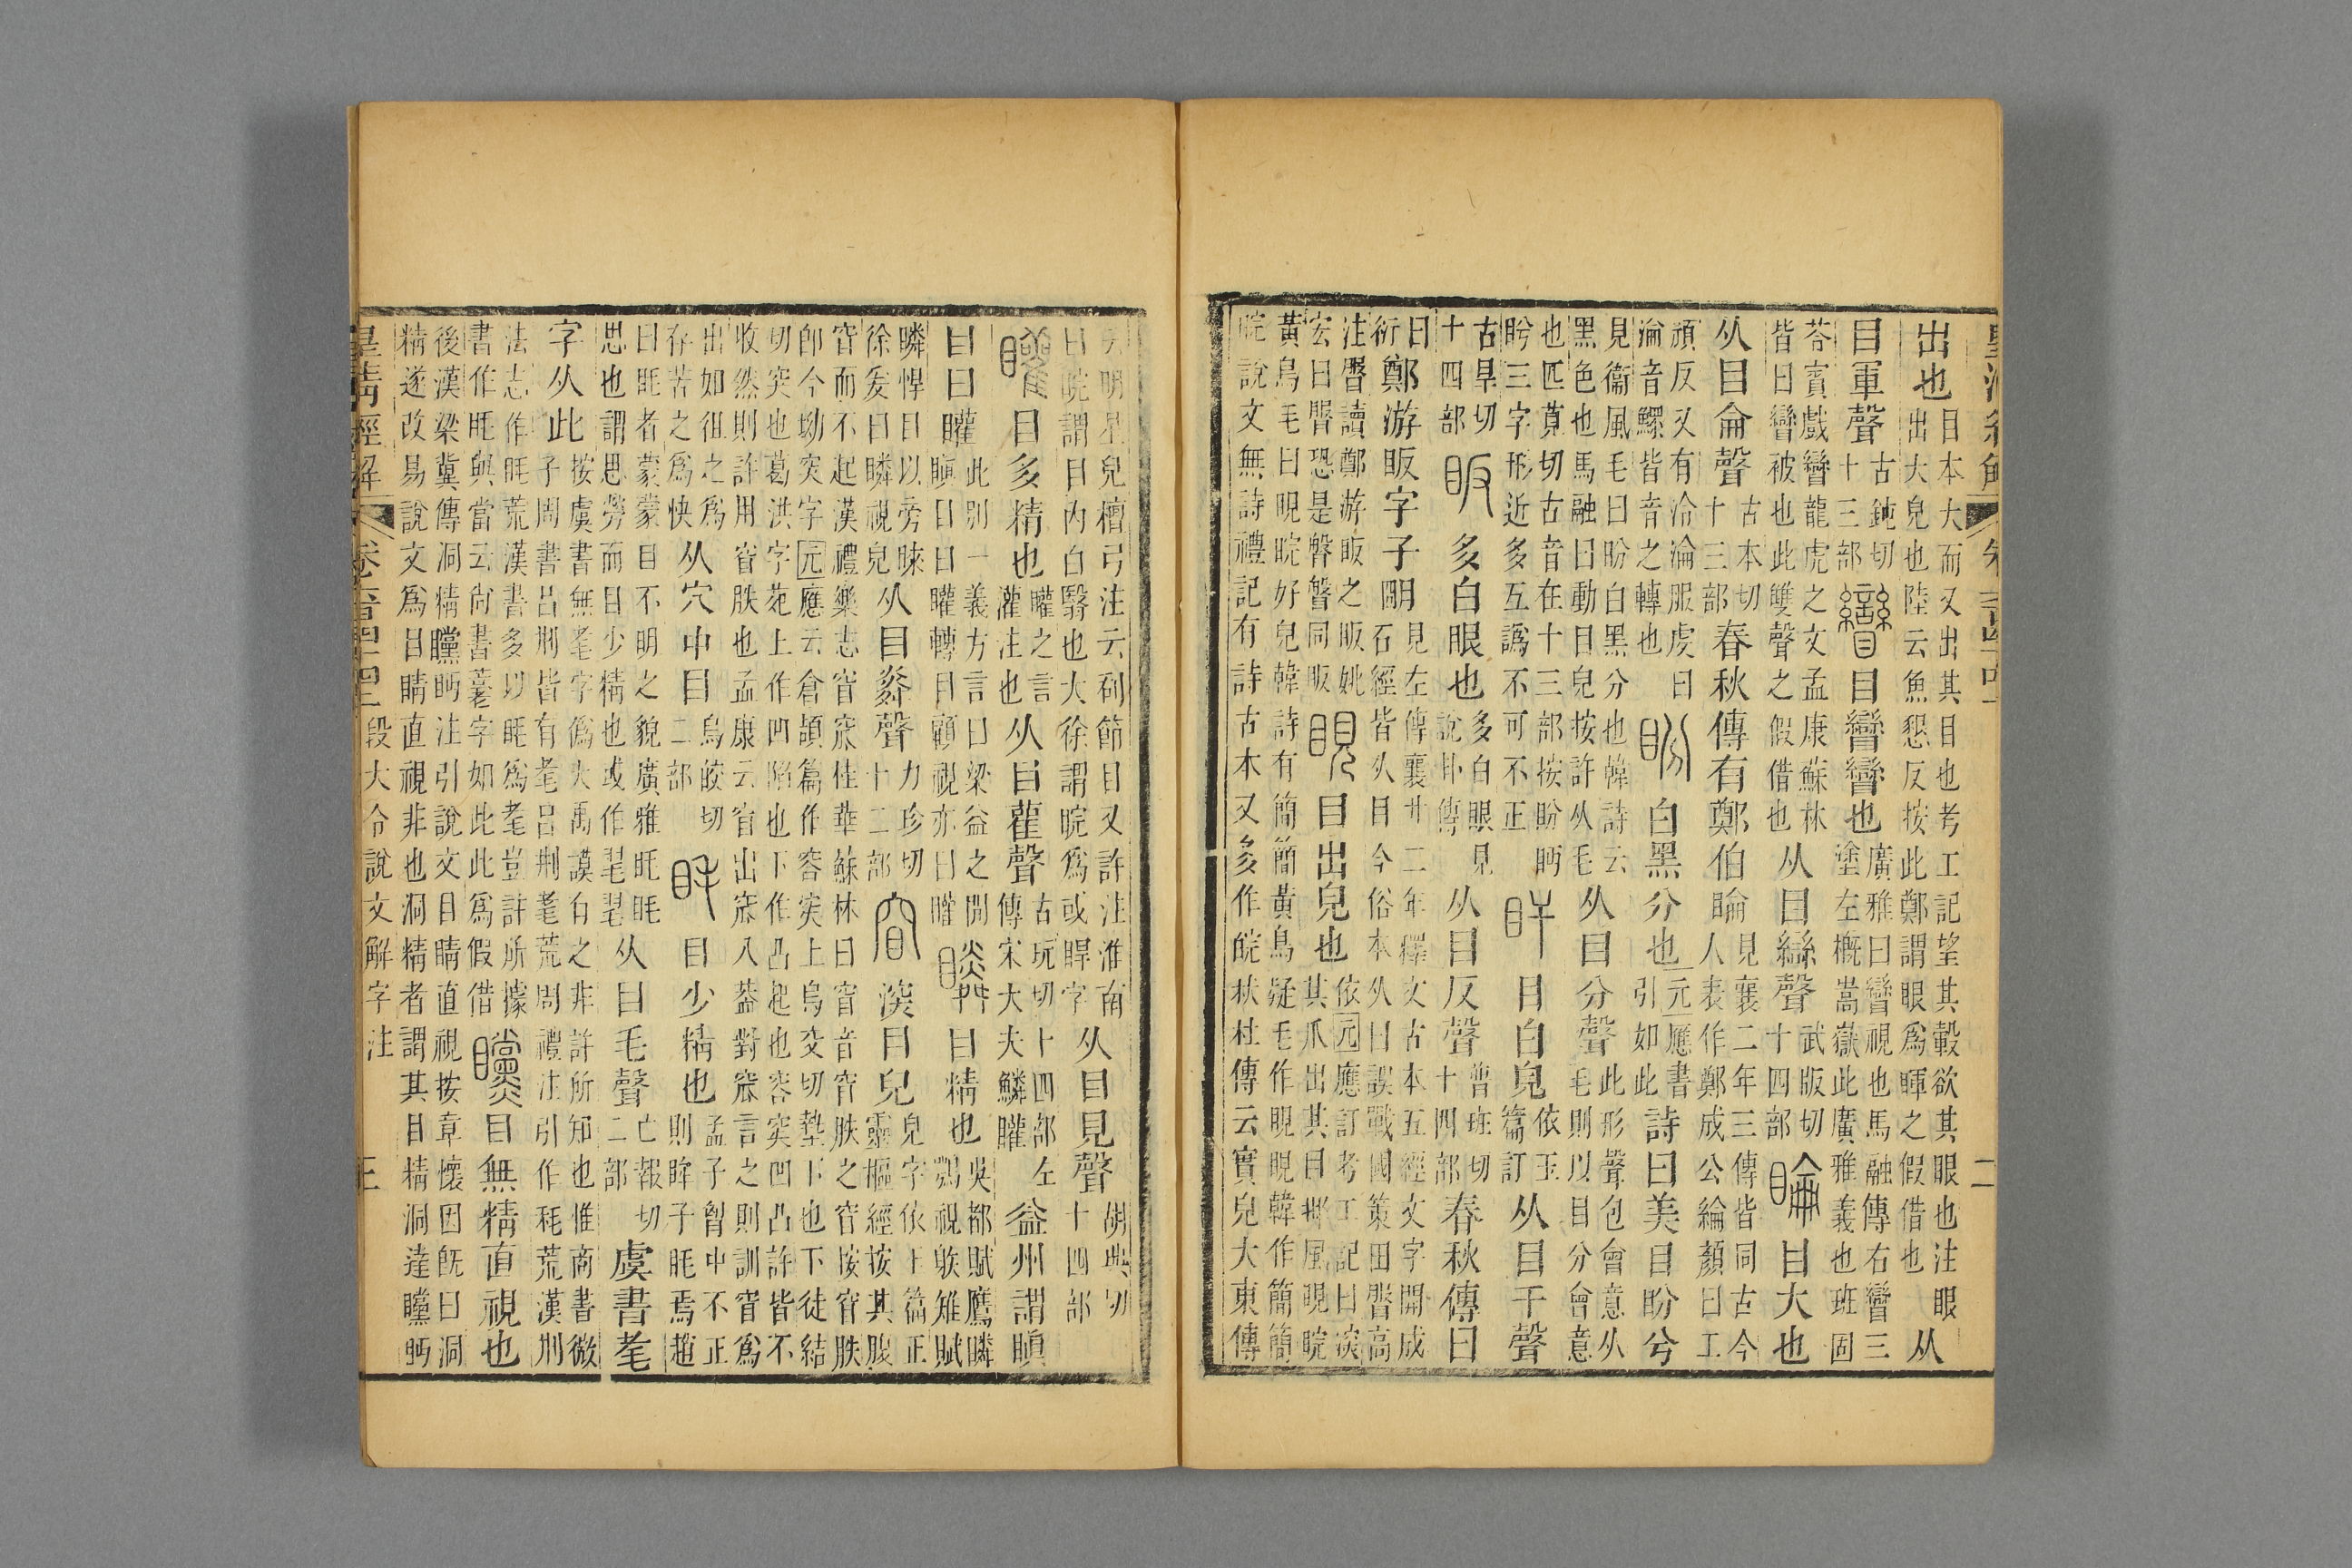 出也
目本大而又出其目也考工記望其轂欲其眼也注眼
出大皃也陸云魚懇反按此鄭謂眼爲暉之假借也
从
目軍聲
古鈍切
十三部
目矕矕也
廣雅曰矕視也馬融傳右矕三
塗左概嵩嶽此廣雅義也班固
荅賓戲矕龍虎之文孟康蘇林
皆曰矕被也此雙聲之假借也
从目䜌聲
武版切
十四部
睔
目大也
从目侖聲
古本切
十三部
春秋傳有鄭伯睔
見襄二年三傳皆同古今
人表作鄭成公綸顏曰工
頑反又有洽淪服虔曰
淪音鰥皆音之轉也
盼
白黑分也
元應書
引如此
詩曰美目盼兮
見衞風毛曰盼白黑分也韓詩云
黑色也馬融曰動目皃按許从毛
从目分聲
此形聲包會意从
毛則以目分會意
也匹莧切古音在十三部按盼眄
盻三字形近多互譌不可不正
盰
目白皃
依玉
篇訂
从目干聲
古旱切
十四部
眅
多白眼也
多白眼見
說卦傳
从目反聲
普班切
十四部
春秋傳曰
曰
衍
鄭游眅字子明
見左傳襄廿二年釋文古本五經文字開成
石經皆从目今俗本从日誤戰國策田𥌒高
注𥌒讀鄭游眅之眅姚
宏曰𥌒恐是磐磐同眅
睍
目出皃也
依元應訂考工記曰涘
其爪出其目邶風睍睆
黃鳥毛曰睍睆好皃韓詩有簡簡黃鳥疑毛作睍睍韓作簡簡
睆說文無詩禮記有詩古本又多作皖杕杜傳云實皃大東傳
云明星皃檀弓注云刮節目又許注淮南
曰睆謂目內白翳也大徐謂睆爲或睅字
从目見聲
胡典切
十四部
矔
目多精也
矔之言
灌注也
从目雚聲
古玩切十四部左
傳宋大夫鱗矔
益州謂瞋
目曰矔
此別一義方言曰梁益之閒
瞋目曰矔轉目顧視亦曰矔
瞵
目精也
吳都賦鷹瞵
鶚視𢾭雉賦
瞵悍目以旁睞
徐爰曰瞵視皃
从目粦聲
力珍切
十二部
窅
深目皃
皃字依上篇正
靈樞經按其腹
窅而不起漢禮樂志窅窱桂華蘇林曰窅音窅胅之窅按窅胅
卽今坳突字元應云倉頡篇作容突上烏交切墊下也下徒結
切突也葛洪字苑上作凹陷也下作凸起也容突凹凸許皆不
收然則許用窅胅也孟康云窅出窱入葢對窱言之則訓窅爲
出如徂之爲
存苦之爲快
从穴中目
烏皎切
二部
眊
目少精也
孟子胷中不正
則眸子眊焉趙
曰眊者蒙蒙目不明之貌廣雅眊眊
思也謂思勞而目少精也或作毣毣
从目毛聲
亡報切
二部
虞書耄
字从此
按虞書無耄字僞大禹謨有之非許所知也惟商書微
子周書呂刑皆有耄呂荆耄荒周禮注引作秏荒漢刑
法志作眊荒漢書多以眊爲耄豈許所據
書作眊與當云尙書薹字如此此爲假借
矘
目無精直視也
後漢梁冀傳洞精矘眄注引說文目睛直視按章懷因旣曰洞
精遂改易說文爲目睛直視非也洞精者謂其目精洞達矘眄
皇清經解
卷六百四十四
段大令說文解字注
三